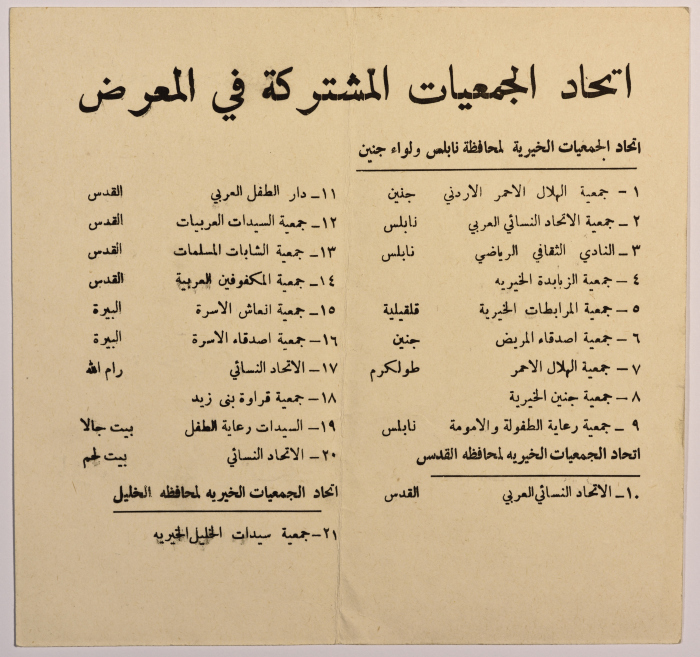 اتحاد الجمعيات المشتركة في المعرض
اتحاد الجمعيات الخيرية لمحافظة نابلس ولواء جنين
١ - جمعية الهلال الاحمر الاردني جنين
٢ - جمعية الاتحاد النسائي العربي نابلس
٣ - النادي الثقافي الرياضي نابلس
٤ - جمعية الزبابدة الخيريه
٥ - جمعية المرابطات الخيرية قلقيلية
٦ - جمعية اصدقاء المريض جنين
٧ - جمعية الهلال الاحمر طولكرم
٨ - جمعية جنين الخيرية
٩ - جمعية رعاية الطفولة والامومة نابلس
اتحاد الجمعيات الخيريه لمحافظه القدس
١٠ - الاتحاد النسائي العربي القدس
١١ - دار الطفل العربي القدس
١٢ - جمعية السيدات العربيات القدس
١٣ - جمعية الشابات المسلمات القدس
١٤ - جمعية المكفوفين العربية القدس
١٥ - جمعية انعاش الاسرة البيرة
١٦ - جمعية اصدقاء الاسرة البيرة
١٧ - الاتحاد النسائي رام الله
١٨ - جمعية قراوة بنى زيد
١٩ - السيدات رعاية الطفل بيت جالا
٢٠ - الاتحاد النسائي بيت لحم
اتحاد الجمعيات الخيريه لمحافظه الخليل
٢١ - جمعية سيدات الخليل الخيريه